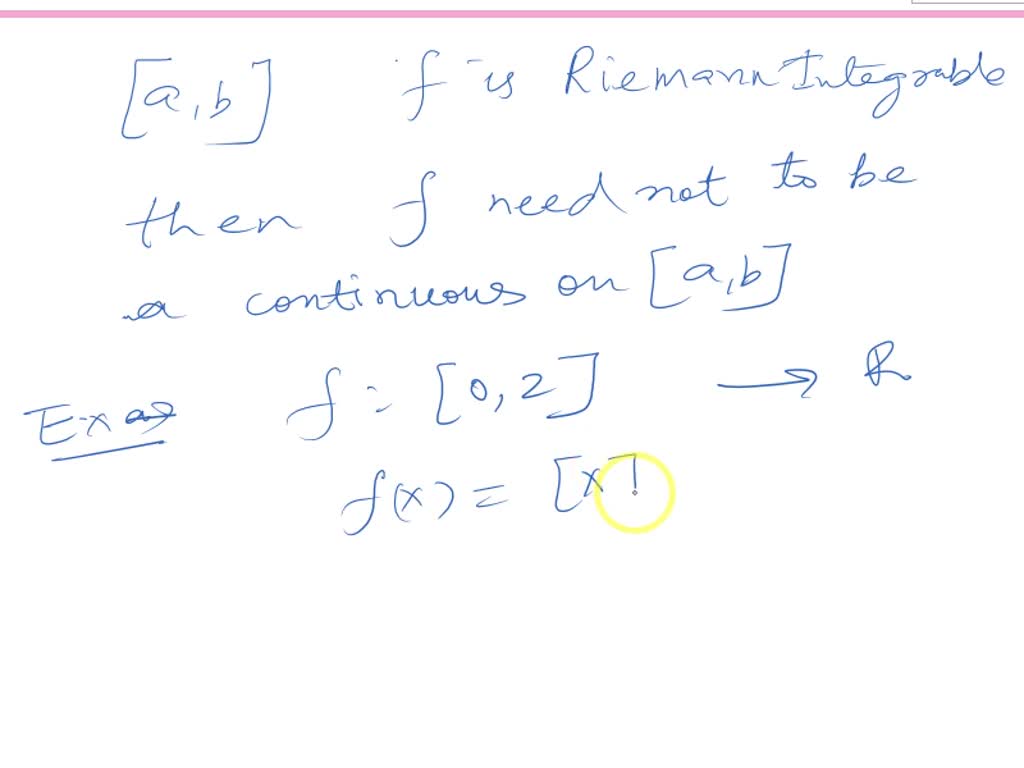 [a, b] f is Riemann Integrable
then f need not to be
a continuous on [a, b]
Ex f : [0, 2] → R
f(x) = [x]